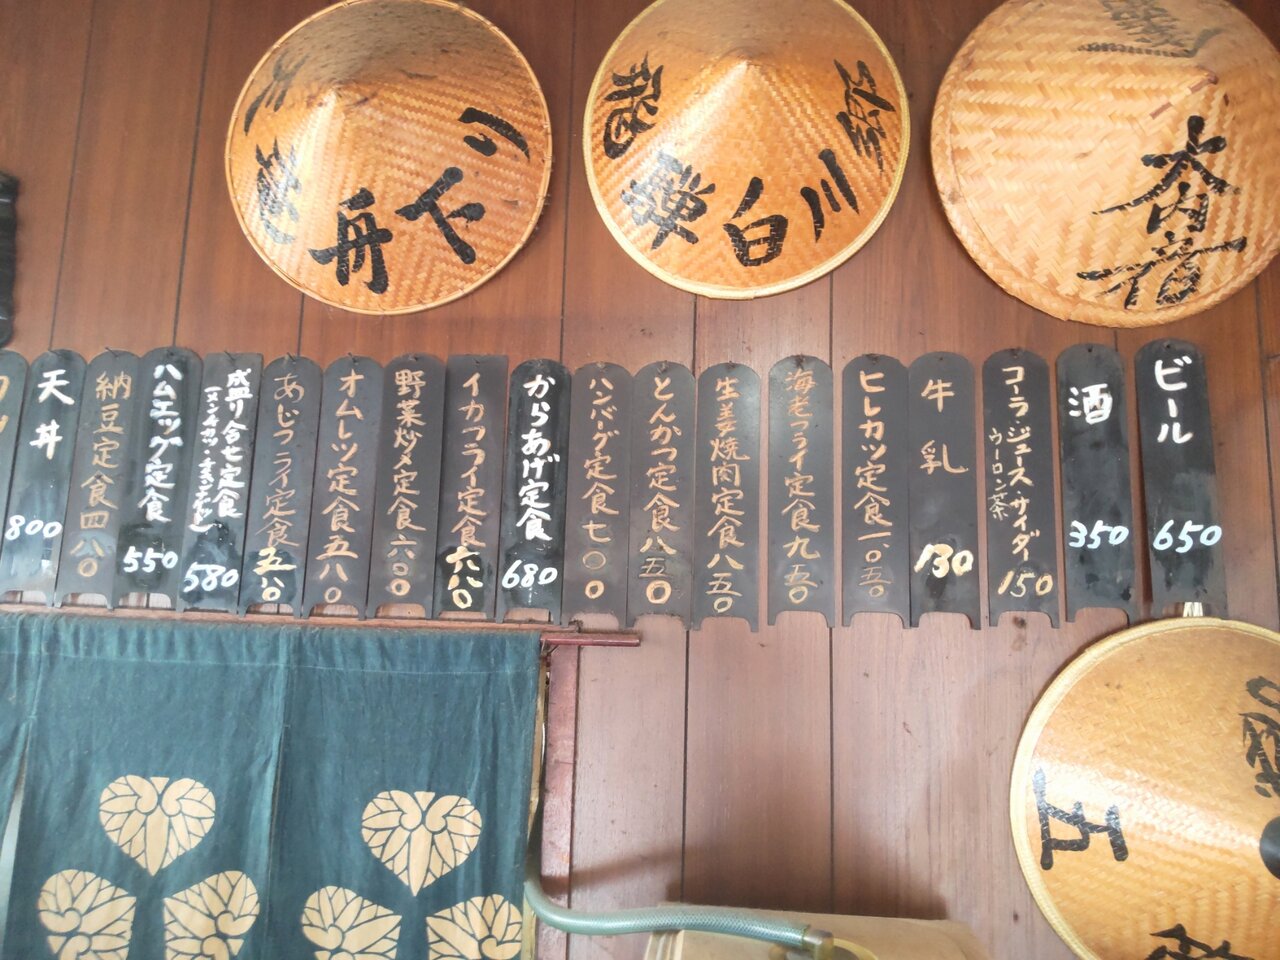 舟
下
り
龍
禅
白
川
郷
ビール 650
酒 350
コーラ・ジュース・サイダー
ウーロン茶
150
牛乳 130
ヒレカツ定食一、〇五〇
海老フライ定食九五〇
生姜焼肉定食八五〇
とんかつ定食八五〇
ハンバーグ定食七〇〇
からあげ定食 680
イカフライ定食六八〇
野菜炒メ定食六〇〇
オムレツ定食五八〇
あじフライ定食五八〇
盛り合せ定食 580
ハムエッグ定食 550
納豆定食四八〇
天丼 800
五